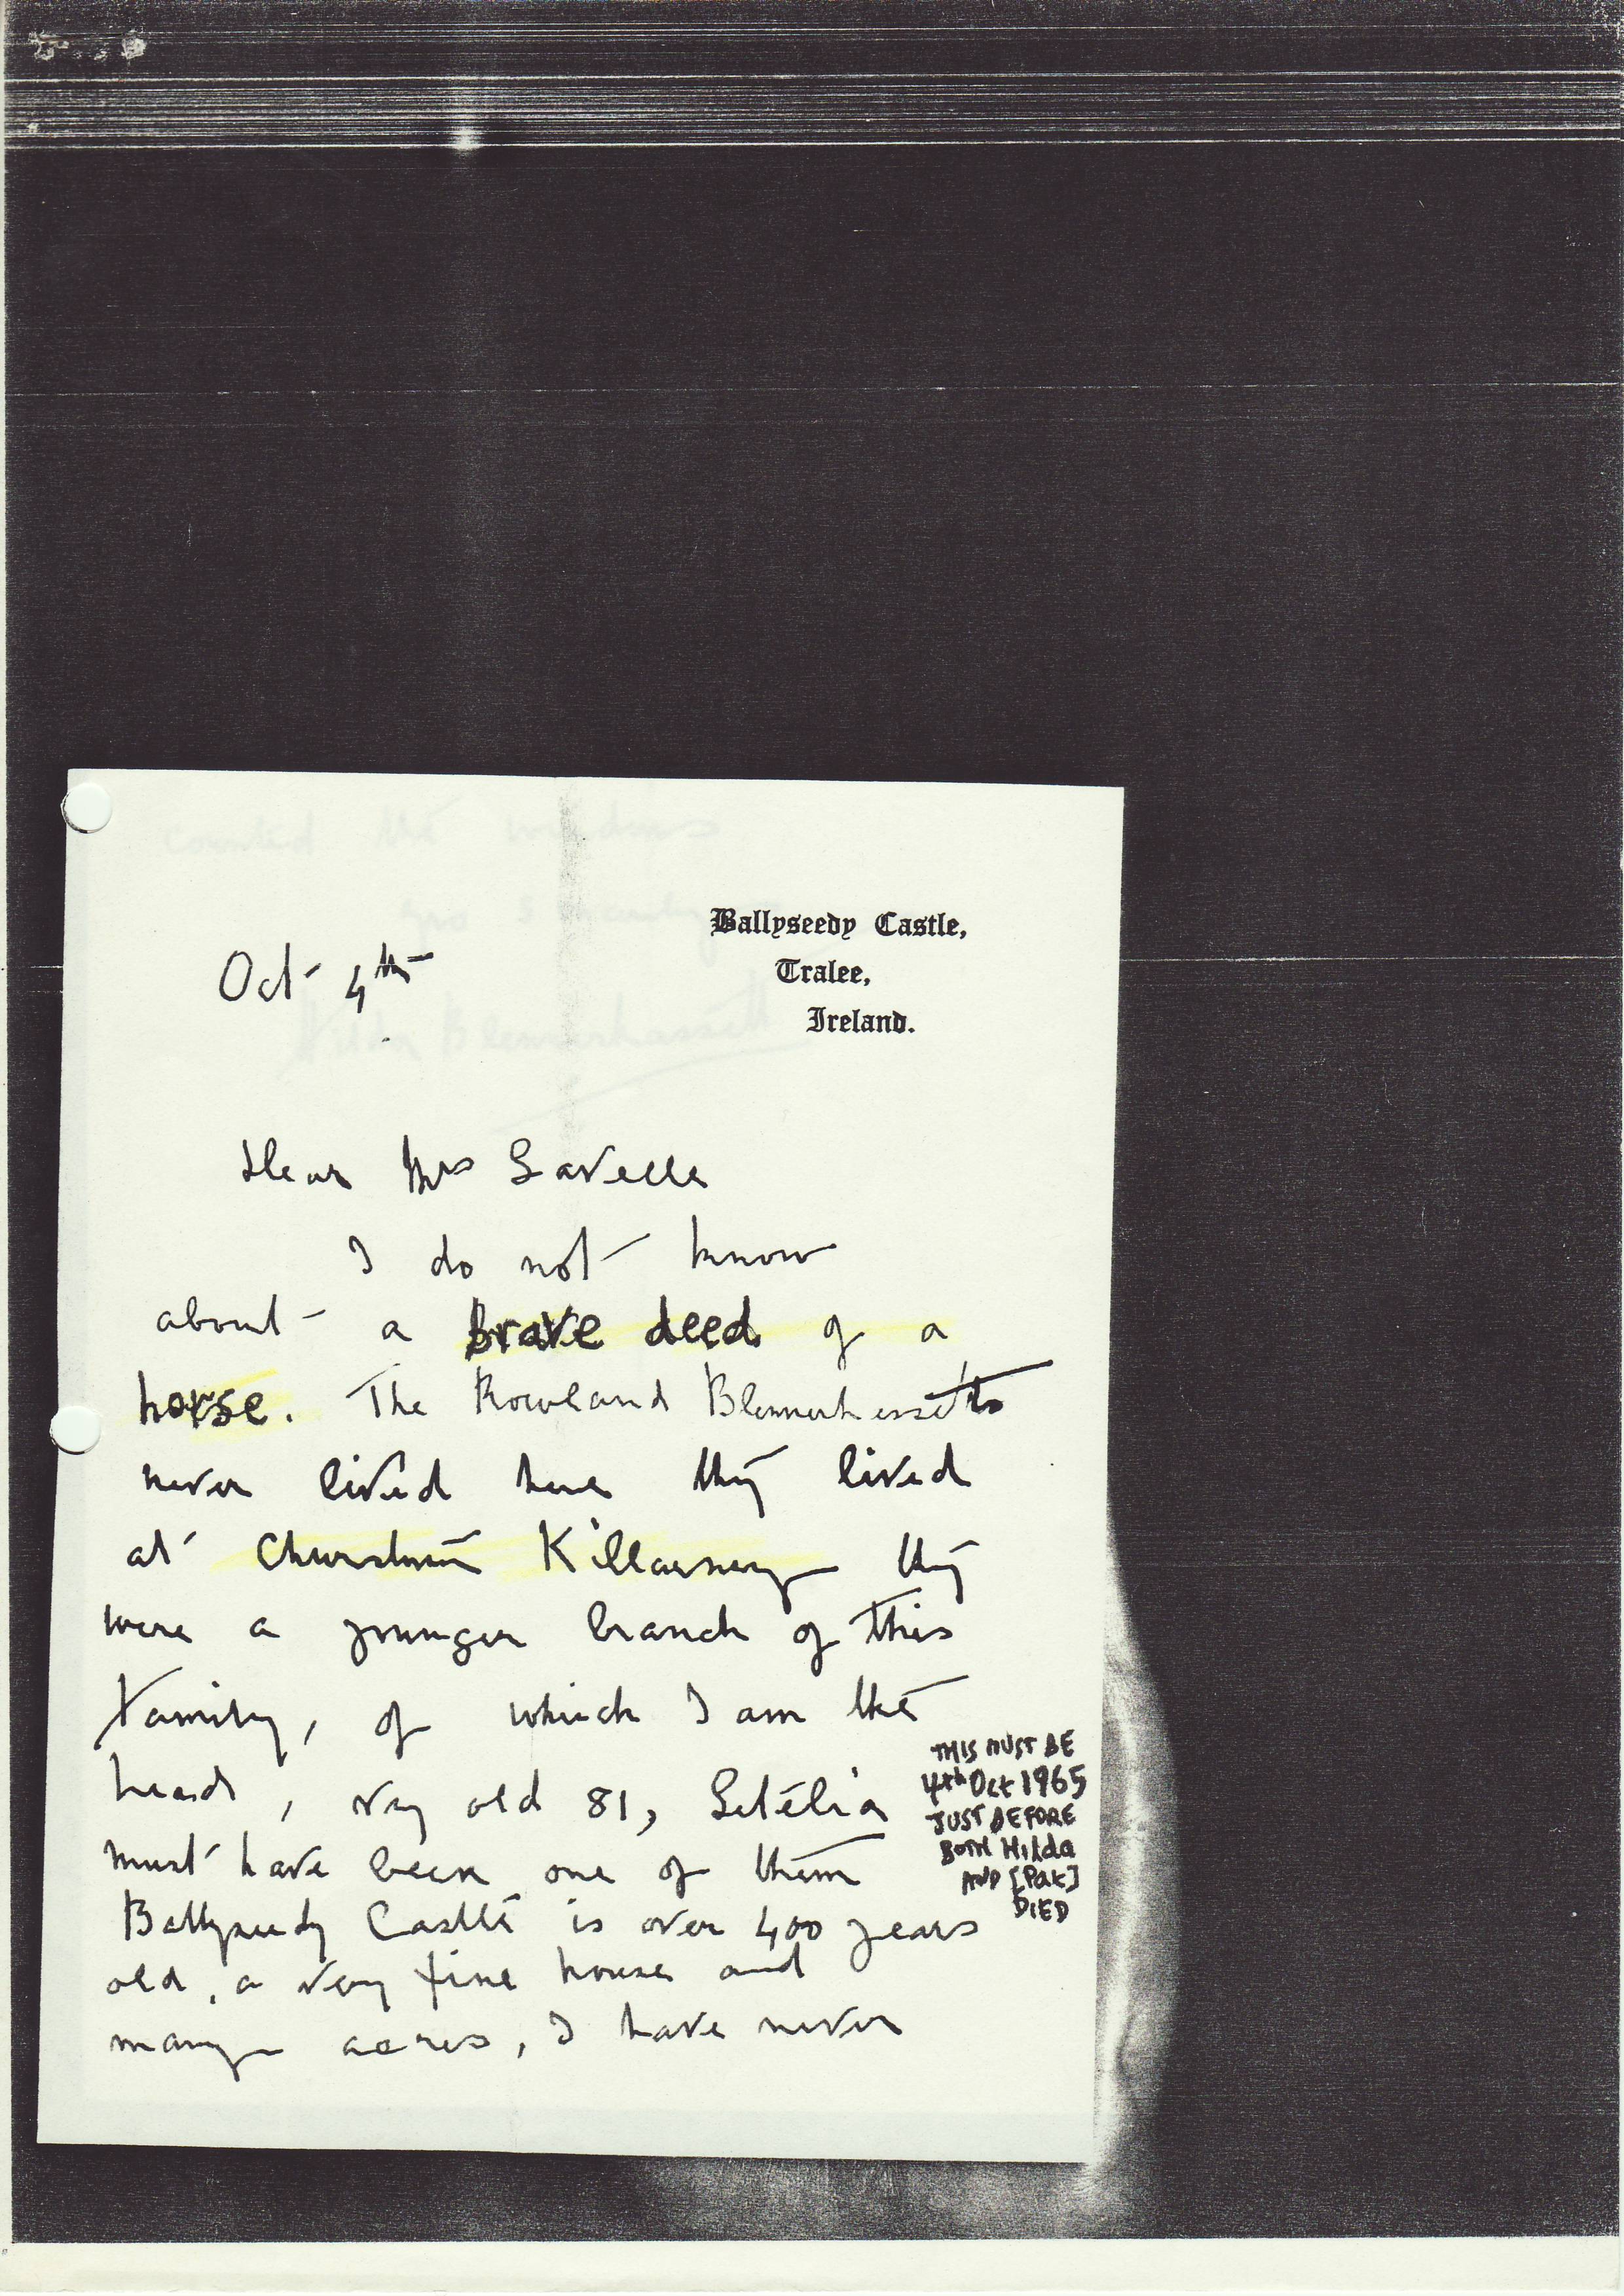 Ballyseedy Castle,
Tralee,
Ireland.
Oct 4th
Dear Mrs Lavelle
I do not know
about a brave deed of a
horse. The Rowland Blennerhassetts
never lived here they lived
at Killarney they
were a younger branch of this
family, of which I am the
head, very old 81,
must have been one of them
Ballyseedy Castle is over 400 years
old, a very fine house and
many acres, I have never
THIS MUST BE
4th Oct 1965
JUST BEFORE
BOTH Hilda
AND [Pat]
DIED
counted the windows
Yrs sincerely
Hilda Blennerhassett